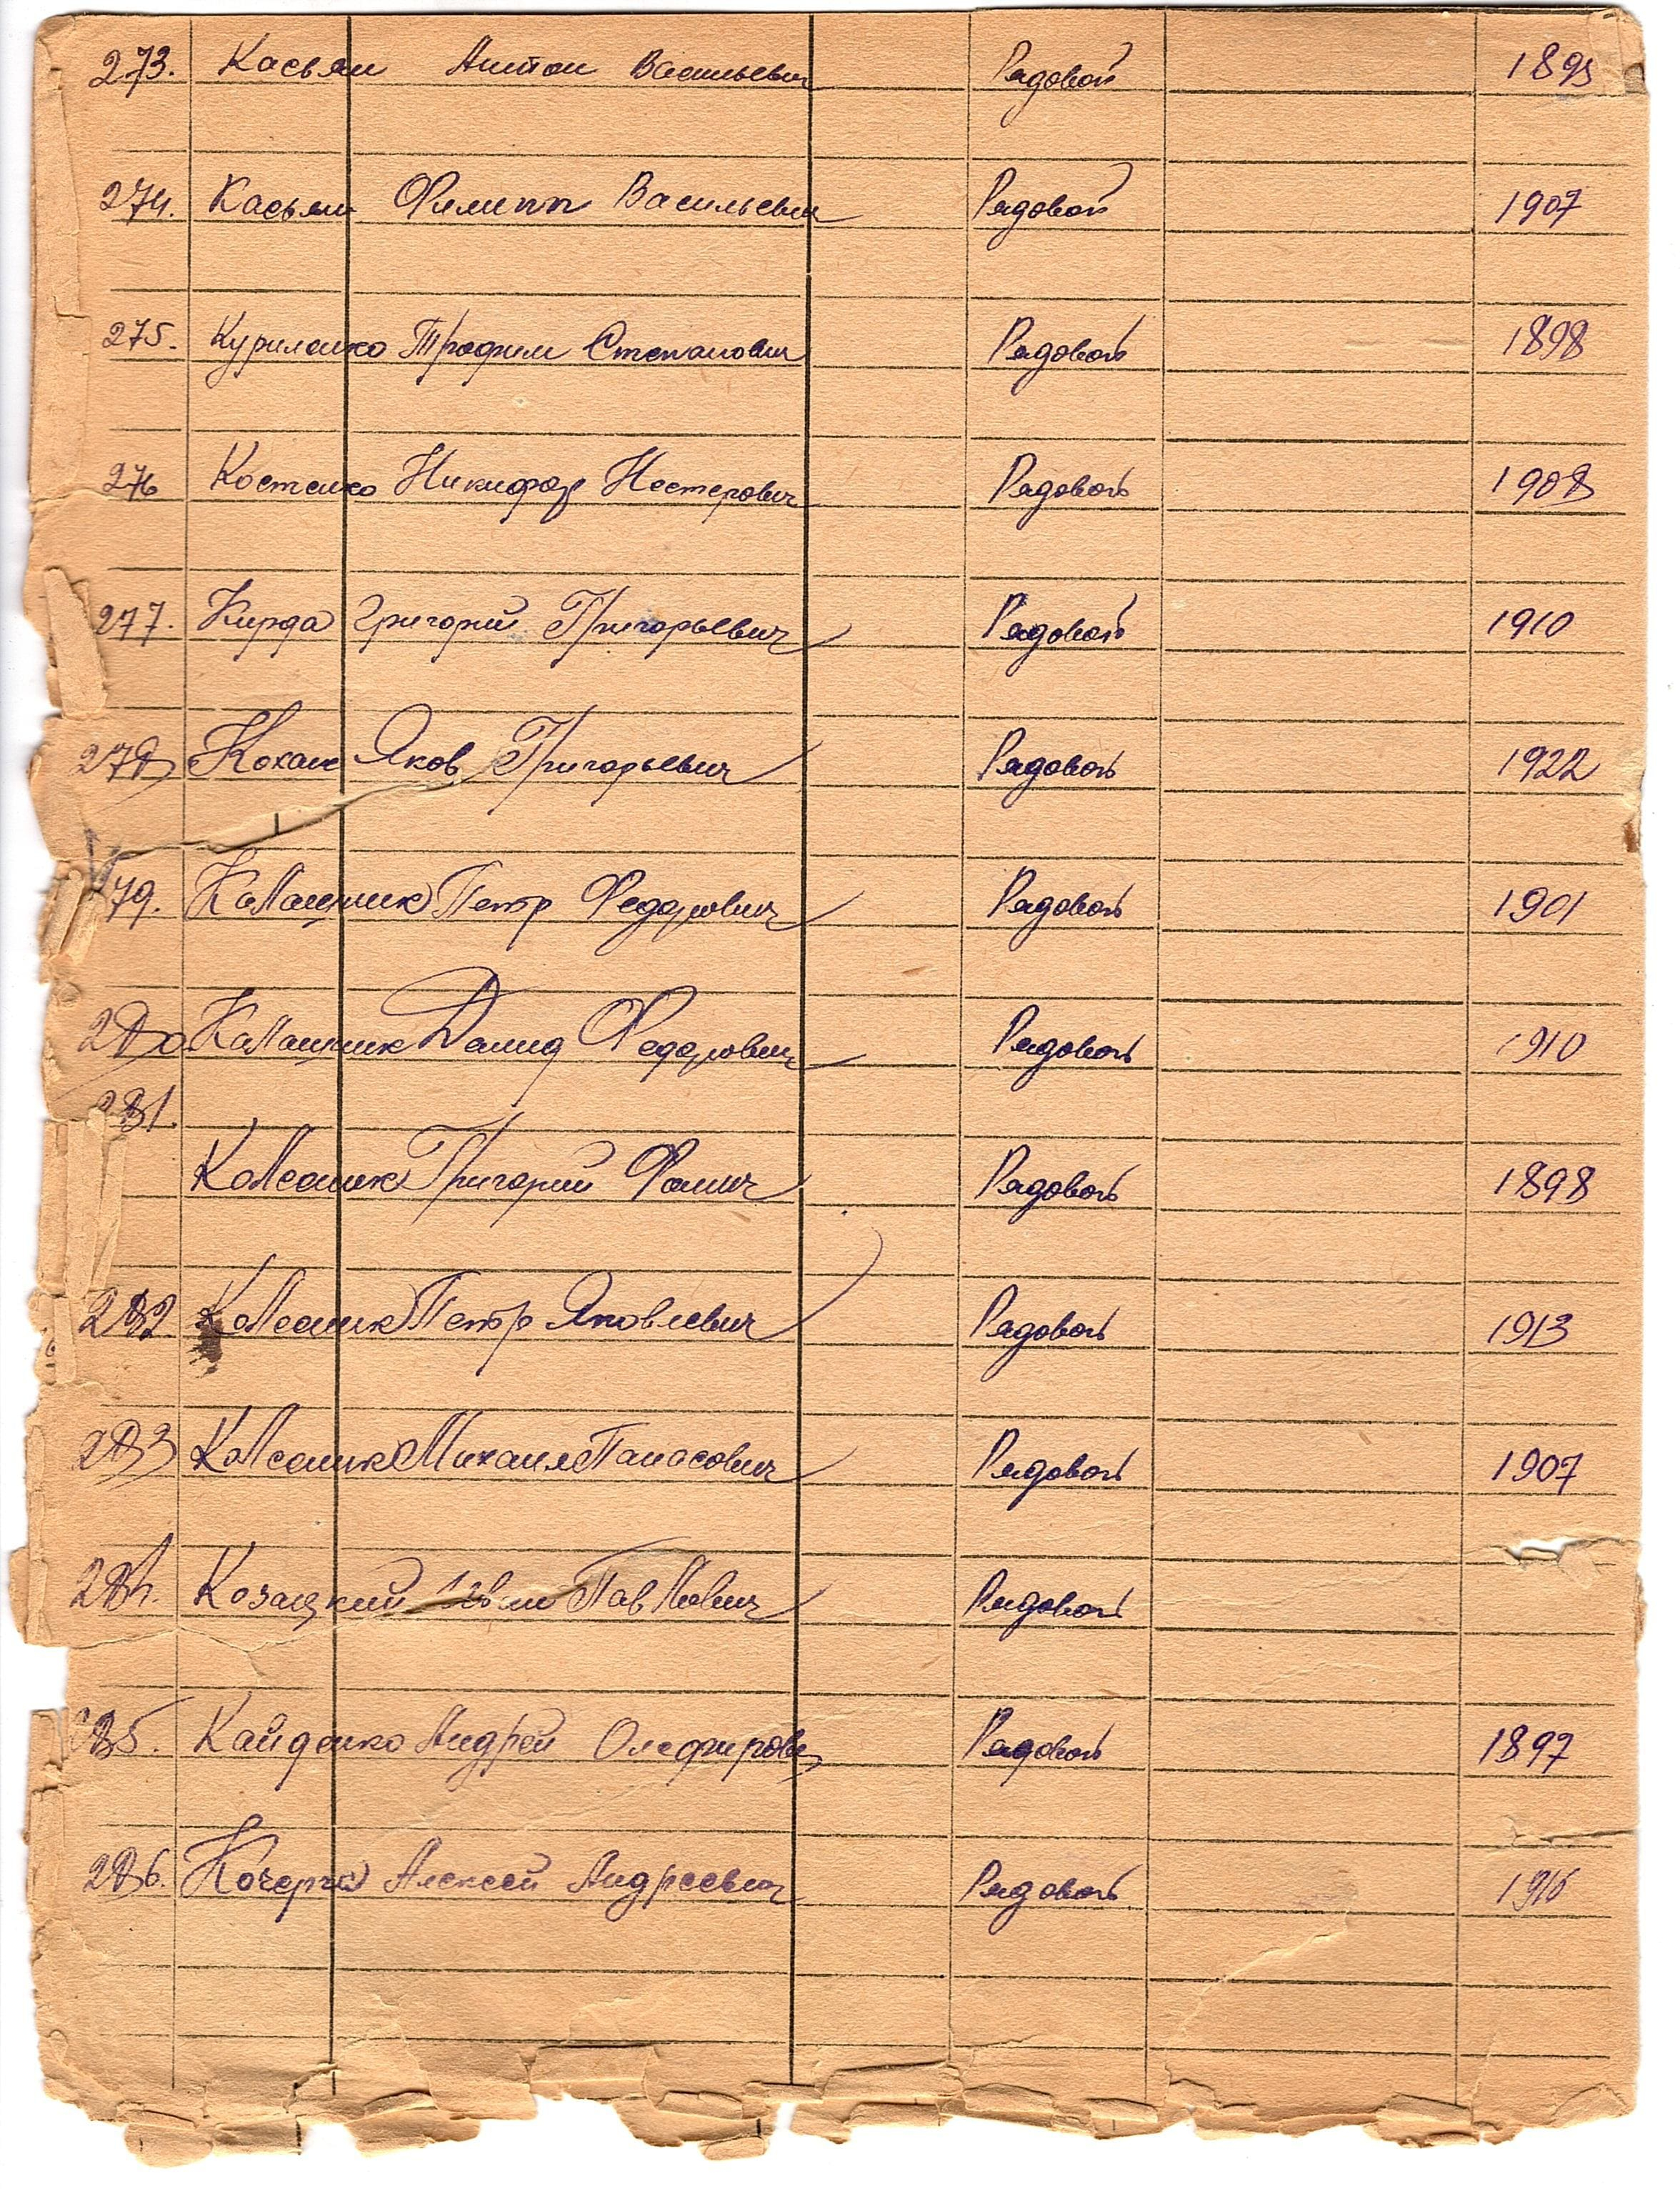 273. Касьян Антон Васильевич Рядовой 1895
274. Касьян Филипп Васильевич Рядовой 1907
275. Куриленко Трофим Степанович Рядовой 1898
276 Костенко Никифор Нестерович Рядовой 1908
277. Кирда Григорий Григорьевич Рядовой 1910
278 Кохан Яков Григорьевич Рядовой 1922
79. Калашник Петр Федорович Рядовой 1901
280 Калашник Демид Федорович Рядовой 1910
281.
Колесник Григорий Фомич Рядовой 1898
282 Колесник Петр Яковлевич Рядовой 1913
283 Колесник Михаил Панасович Рядовой 1907
284. Козацкий Павлович Рядовой
285. Кайденко Андрей Олефирович Рядовой 1897
286. Кочерга Алексей Андреевич Рядовой 1916